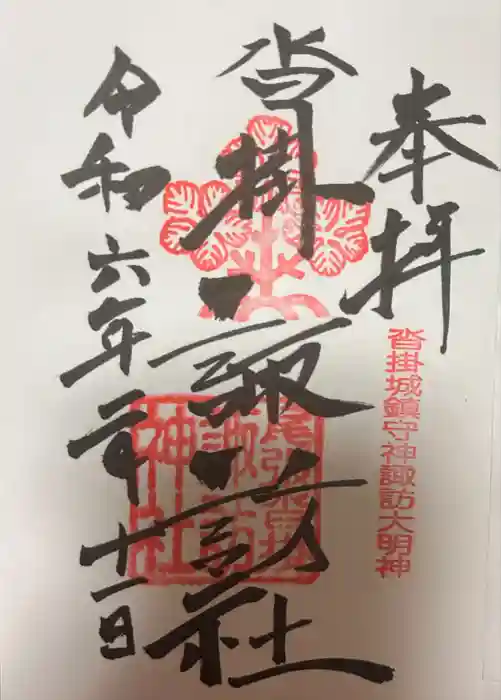 奉拝
沓掛城鎮守神諏訪大明神
沓掛諏訪社
令和六年二月十一日
諏訪
神社